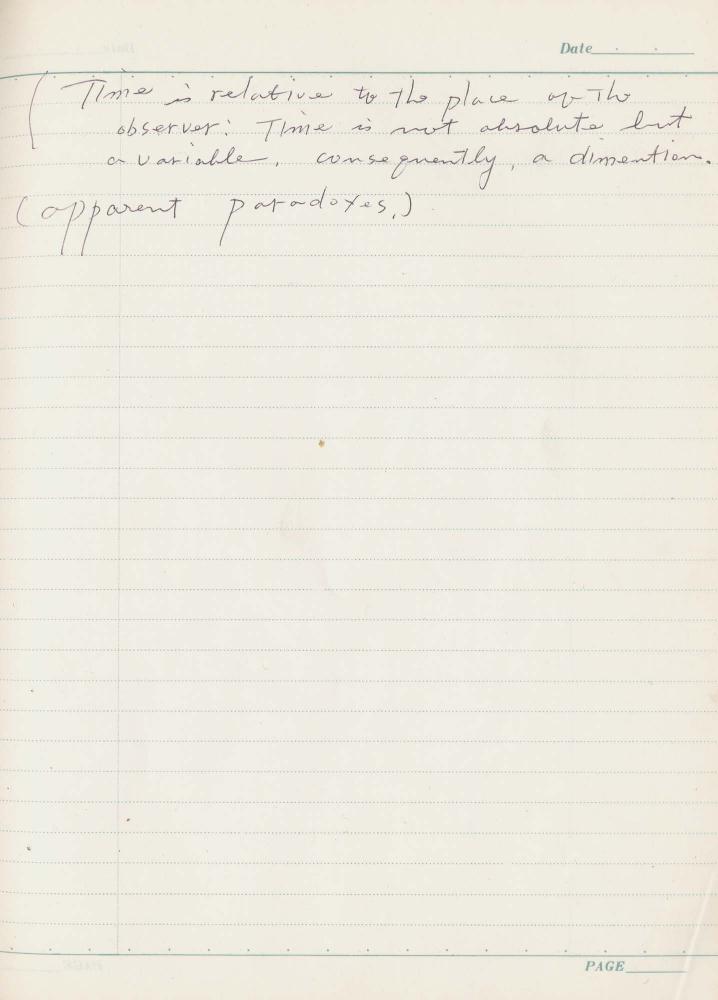 Date
(Time is relative to the place of the
observer: Time is not absolute but
a variable, consequently, a dimention.
(apparent paradoxes.)
PAGE